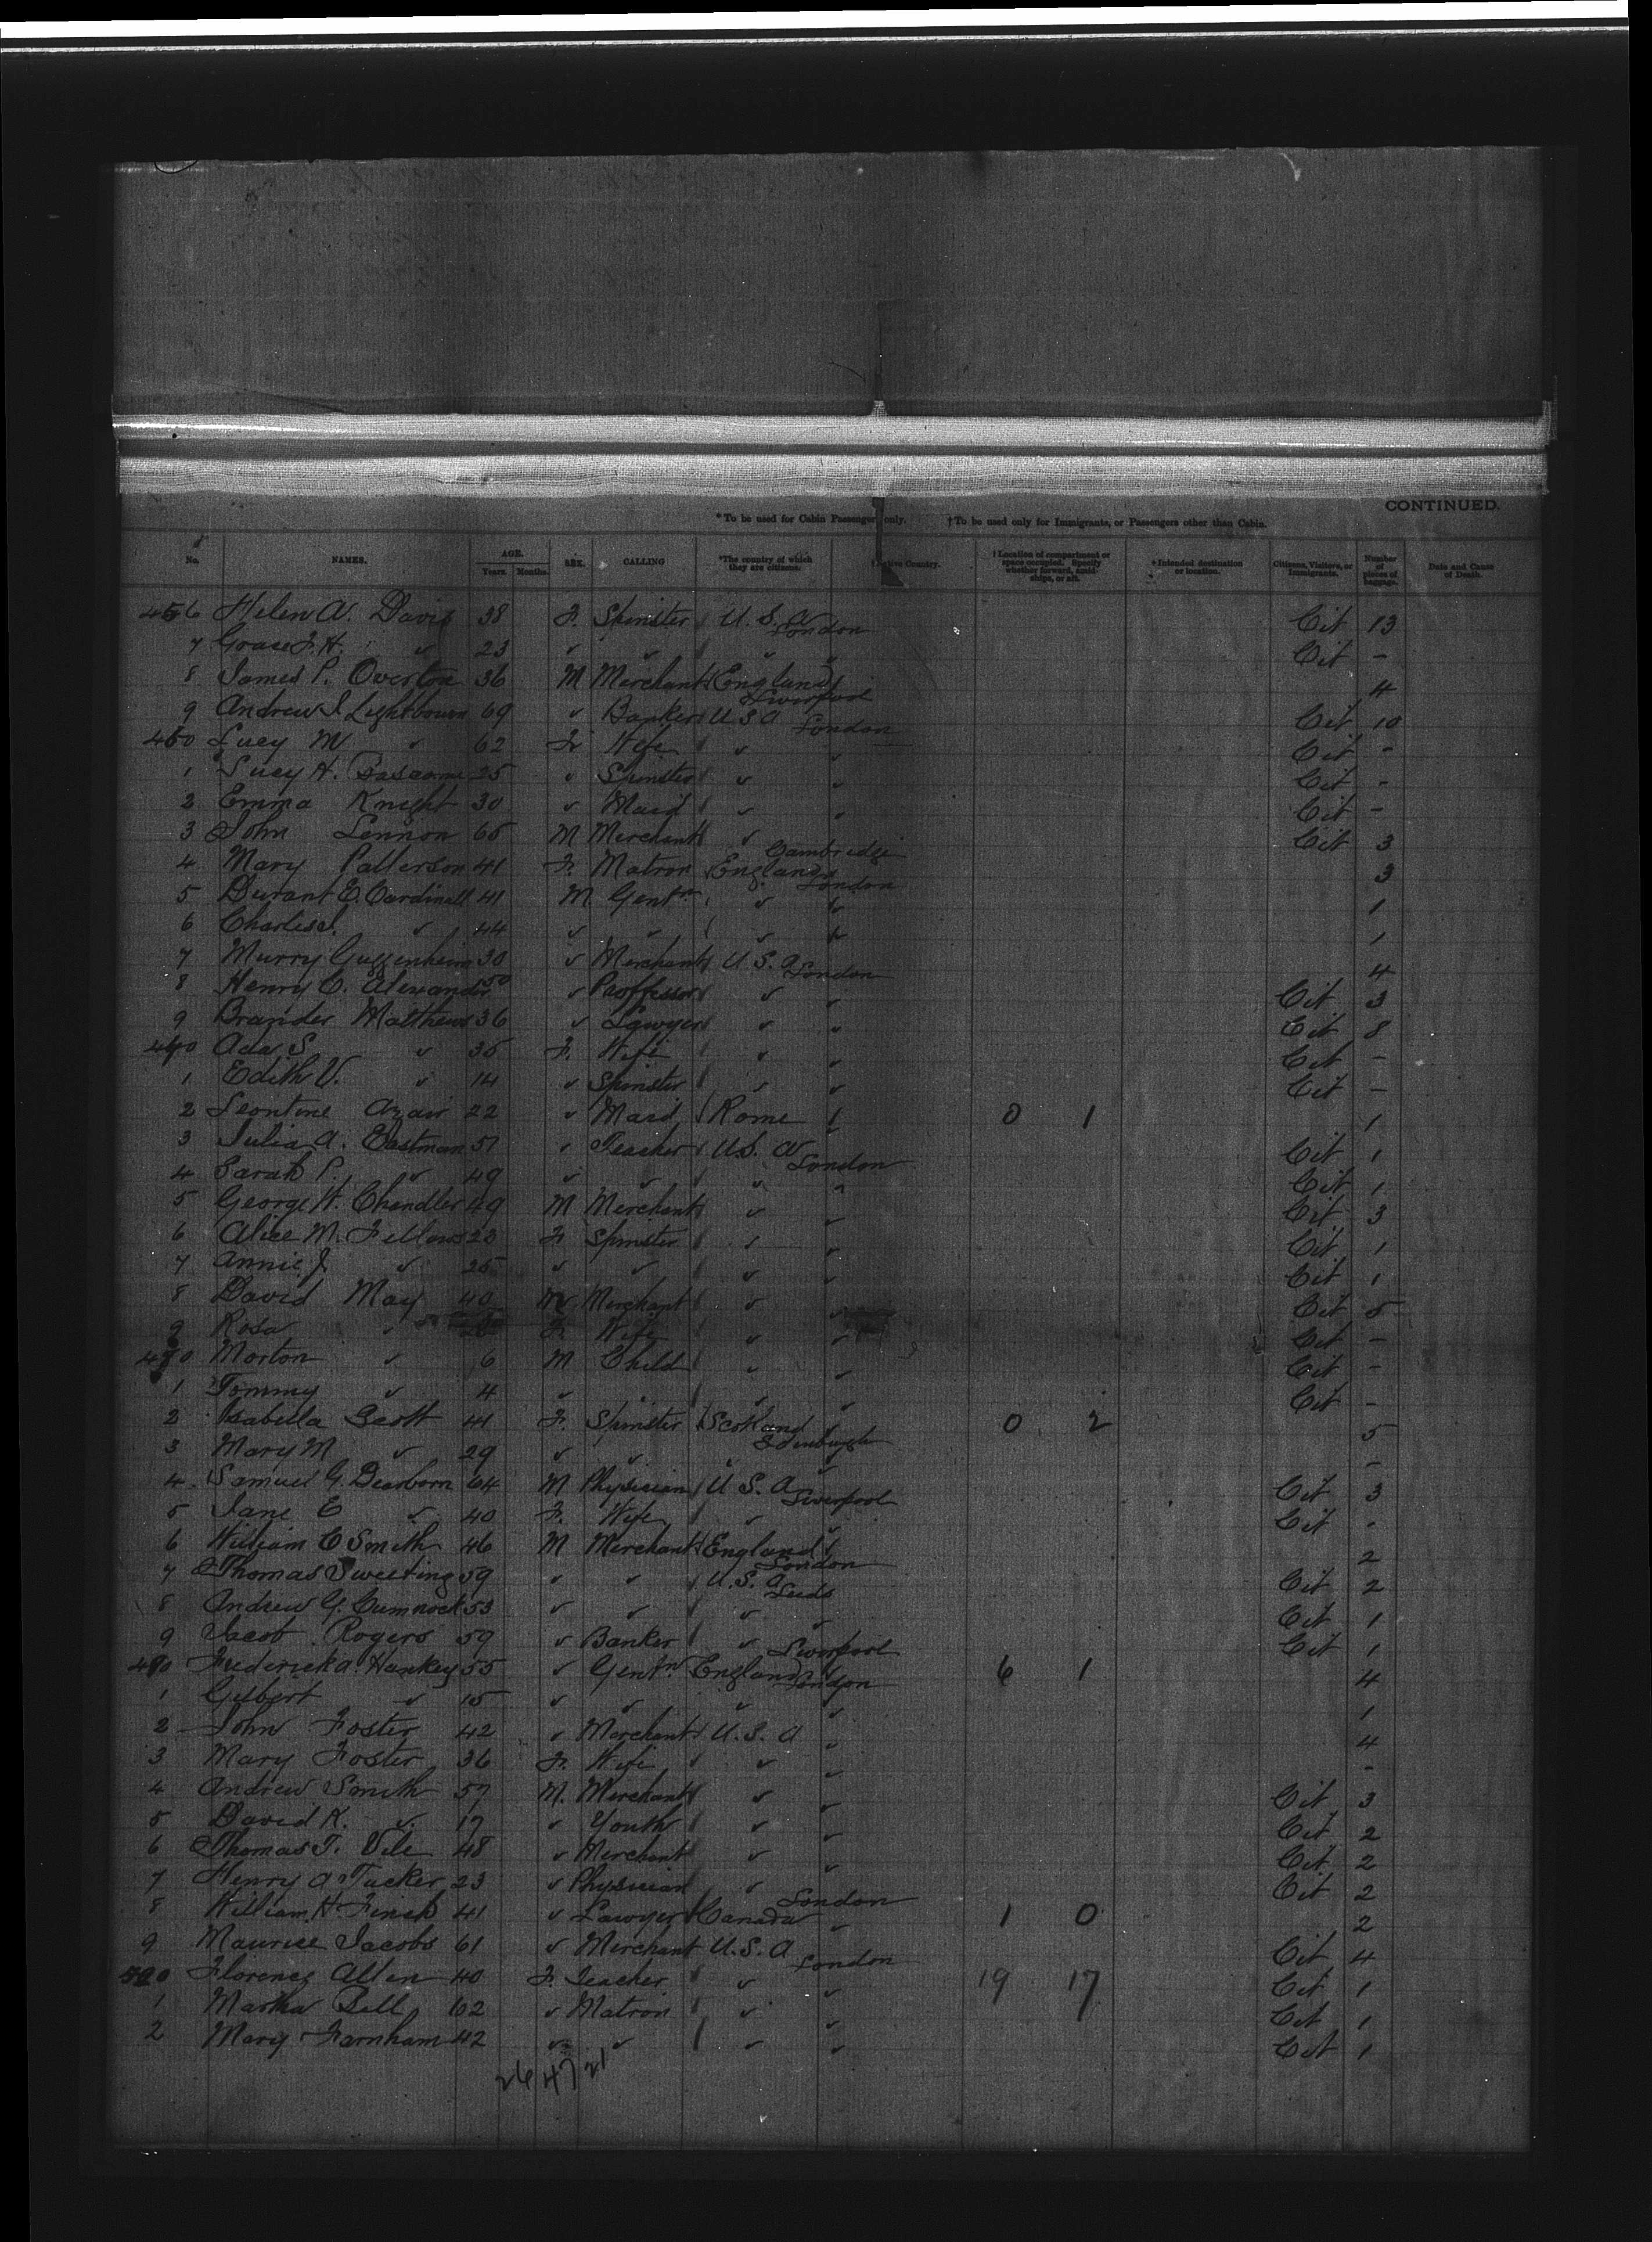 CONTINUED.
*To be used for Cabin Passengers only. †To be used only for Immigrants, or Passengers other than Cabin.
No. NAMES. AGE. Years. Months. SEX. CALLING *The country of which they are citizens. †Native Country. †Location of compartment or space occupied. Specify whether forward, amidships, or aft. †Intended destination or location. Citizens, Visitors, or Immigrants. Number of pieces of baggage. Date and Cause of Death.
456 Helen A. Davis 38 F. Spinster U. S. A London Cit 13
7 Grace F. H. " 23 " " " " Cit -
8 James P. Overton 36 M Merchant England Liverpool 4
9 Andrew J. Lightbourn 69 " Banker U S A London Cit 10
460 Lucy M " 62 F. Wife " " Cit -
1 Lucy H. Bascome 25 " Spinster " " Cit -
2 Emma Knight 30 " Maid " " Cit -
3 John Lennon 65 M Merchant " Cambridge Cit 3
4 Mary Patterson 41 F. Matron England London 3
5 Durant E. Cardinall 41 M Gentn " " 1
6 Charles J. " 44 " " " " 1
7 Murry Guggenheim 30 " Merchant U. S. A London 4
8 Henry C. Alexander 50 " Proffessor " " Cit 3
9 Brander Matthews 36 " Lawyer " " Cit 8
Ada S " 35 F. Wife " " Cit -
1 Edith V. " 14 " Spinster " " Cit -
2 Leontine 22 " Maid Rome " 0 1 1
3 Julia A. Eastman 51 " Teacher U.S. A London Cit 1
4 Sarah P. " 49 " " " " Cit 1
5 George W. Chandler 49 M Merchant " " Cit 3
6 Alice M. Fellows 23 F. Spinster " " Cit 1
7 Annie J. " 25 " " " " Cit 1
8 David May 40 M Merchant " " Cit 5
9 Rosa " F. Wife " " Cit -
Morton " 6 M Child " " Cit -
1 Tommy " 4 " " " Cit -
2 Isabella Scott 41 F. Spinster Scotland Edinburgh 0 2 5
3 Mary M " 29 " " " " -
4 Samuel G. Dearborn 64 M Physician U S. A Liverpool Cit 3
5 Jane E " 40 F. Wife " " Cit -
6 William C Smith 46 M Merchant England London 2
7 Thomas Sweeting 59 " " U. S. A Leeds Cit 2
8 Andrew G. Cumnock 53 " " " " Cit 1
9 Jacob Rogers 59 " Banker " Liverpool Cit 1
Frederick A. Hankey 55 " Gentn England London 6 1 4
1 Gilbert " 15 " " " " 1
2 John Foster 42 " Merchant U. S. A " 4
3 Mary Foster 36 F. Wife " " -
4 Andrew Smith 57 M. Merchant " " Cit 3
5 David K. " 17 " Youth " " Cit 2
6 Thomas T. Vile 48 " Merchant " " Cit 2
7 Henry A Tucker 23 " Physician " London Cit 2
8 William H. Finch 41 " Lawyer Canada " 1 0 2
9 Maurice Jacobs 61 " Merchant U. S. A London Cit 4
Florence Allen 40 F. Teacher " " 19 17 Cit 1
1 Martha Bell 62 " Matron " " Cit 1
2 Mary Farnham 42 " " " " Cit 1
26 47 21